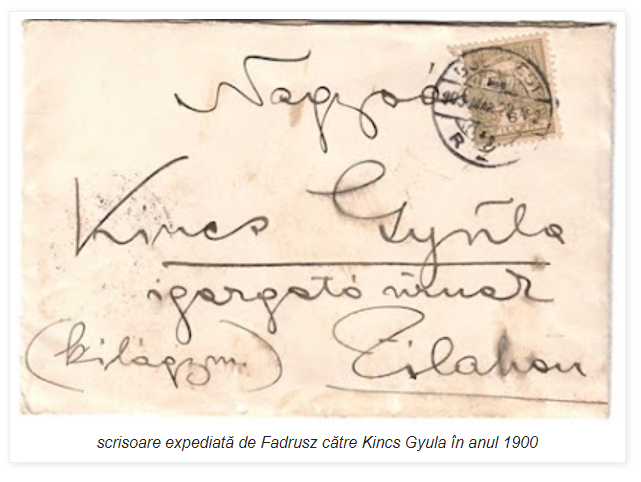 Nagysá
Kincs Gyula
igazgató úrnak
(Szilágym.) Zilahon
scrisoare expediată de Fadrusz către Kincs Gyula în anul 1900